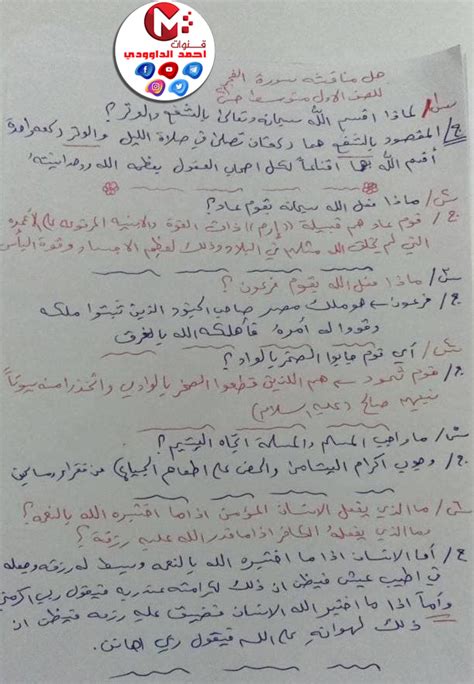 قنوات
احمد الداوودي
حل مناقشة سورة الفجر
للصف الاول متوسط
س/ لماذا اقسم الله سبحانه وتعالى بالشفع والوتر؟
ج/ المقصود بالشفع هما ركعتان تصلى في صلاة الليل والوتر ركعه واحدة
أقسم الله بهما اقناعاً لكل اصحاب العقول بعظمة الله ووحدانيته
س/ ماذا فعل الله سبحانه بقوم عاد؟
ج/ قوم عاد هم قبيلة ((إرم)) ذات القوة والابنية المرفوعه على الأعمدة
التي لم يخلق الله مثلهم في البلاد وذلك لعظم الاجساد وقوة البأس
س/ ماذا فعل الله بقوم فرعون؟
ج/ فرعون هو ملك مصر صاحب الجنود الذين ثبتوا ملكه
وقووا له أمره فأهلكه الله بالغرق
س/ أي قوم جابوا الصخر بالواد؟
ج/ قوم ثمود هم اللذين قطعوا الصخر بالوادي واتخذوا منه بيوتاً
نبيهم صالح (عليه السلام)
س/ ما واجب المسلم والمسلمة اتجاه اليتيم؟
ج/ وجوب اكرام اليتامى والحض على اطعام الجياع من فقراء ومساكين
س/ ما الذي يفعل الانسان المؤمن اذا ما اختبره الله بالنعمة؟
وما الذي يفعله الكافر اذا ما قدر الله عليه رزقه؟
ج/ أما الانسان اذا ما اختبره الله بالنعمه وبسط له رزقه وجعله
في اطيب عيش فيظن ان ذلك لكرامته عند ربه فيقول ربي اكرمني
وأما اذا ما اختبر الله الانسان فضيق عليه رزقه فيظن ان
ذلك لهوانه على الله فيقول ربي اهانن.